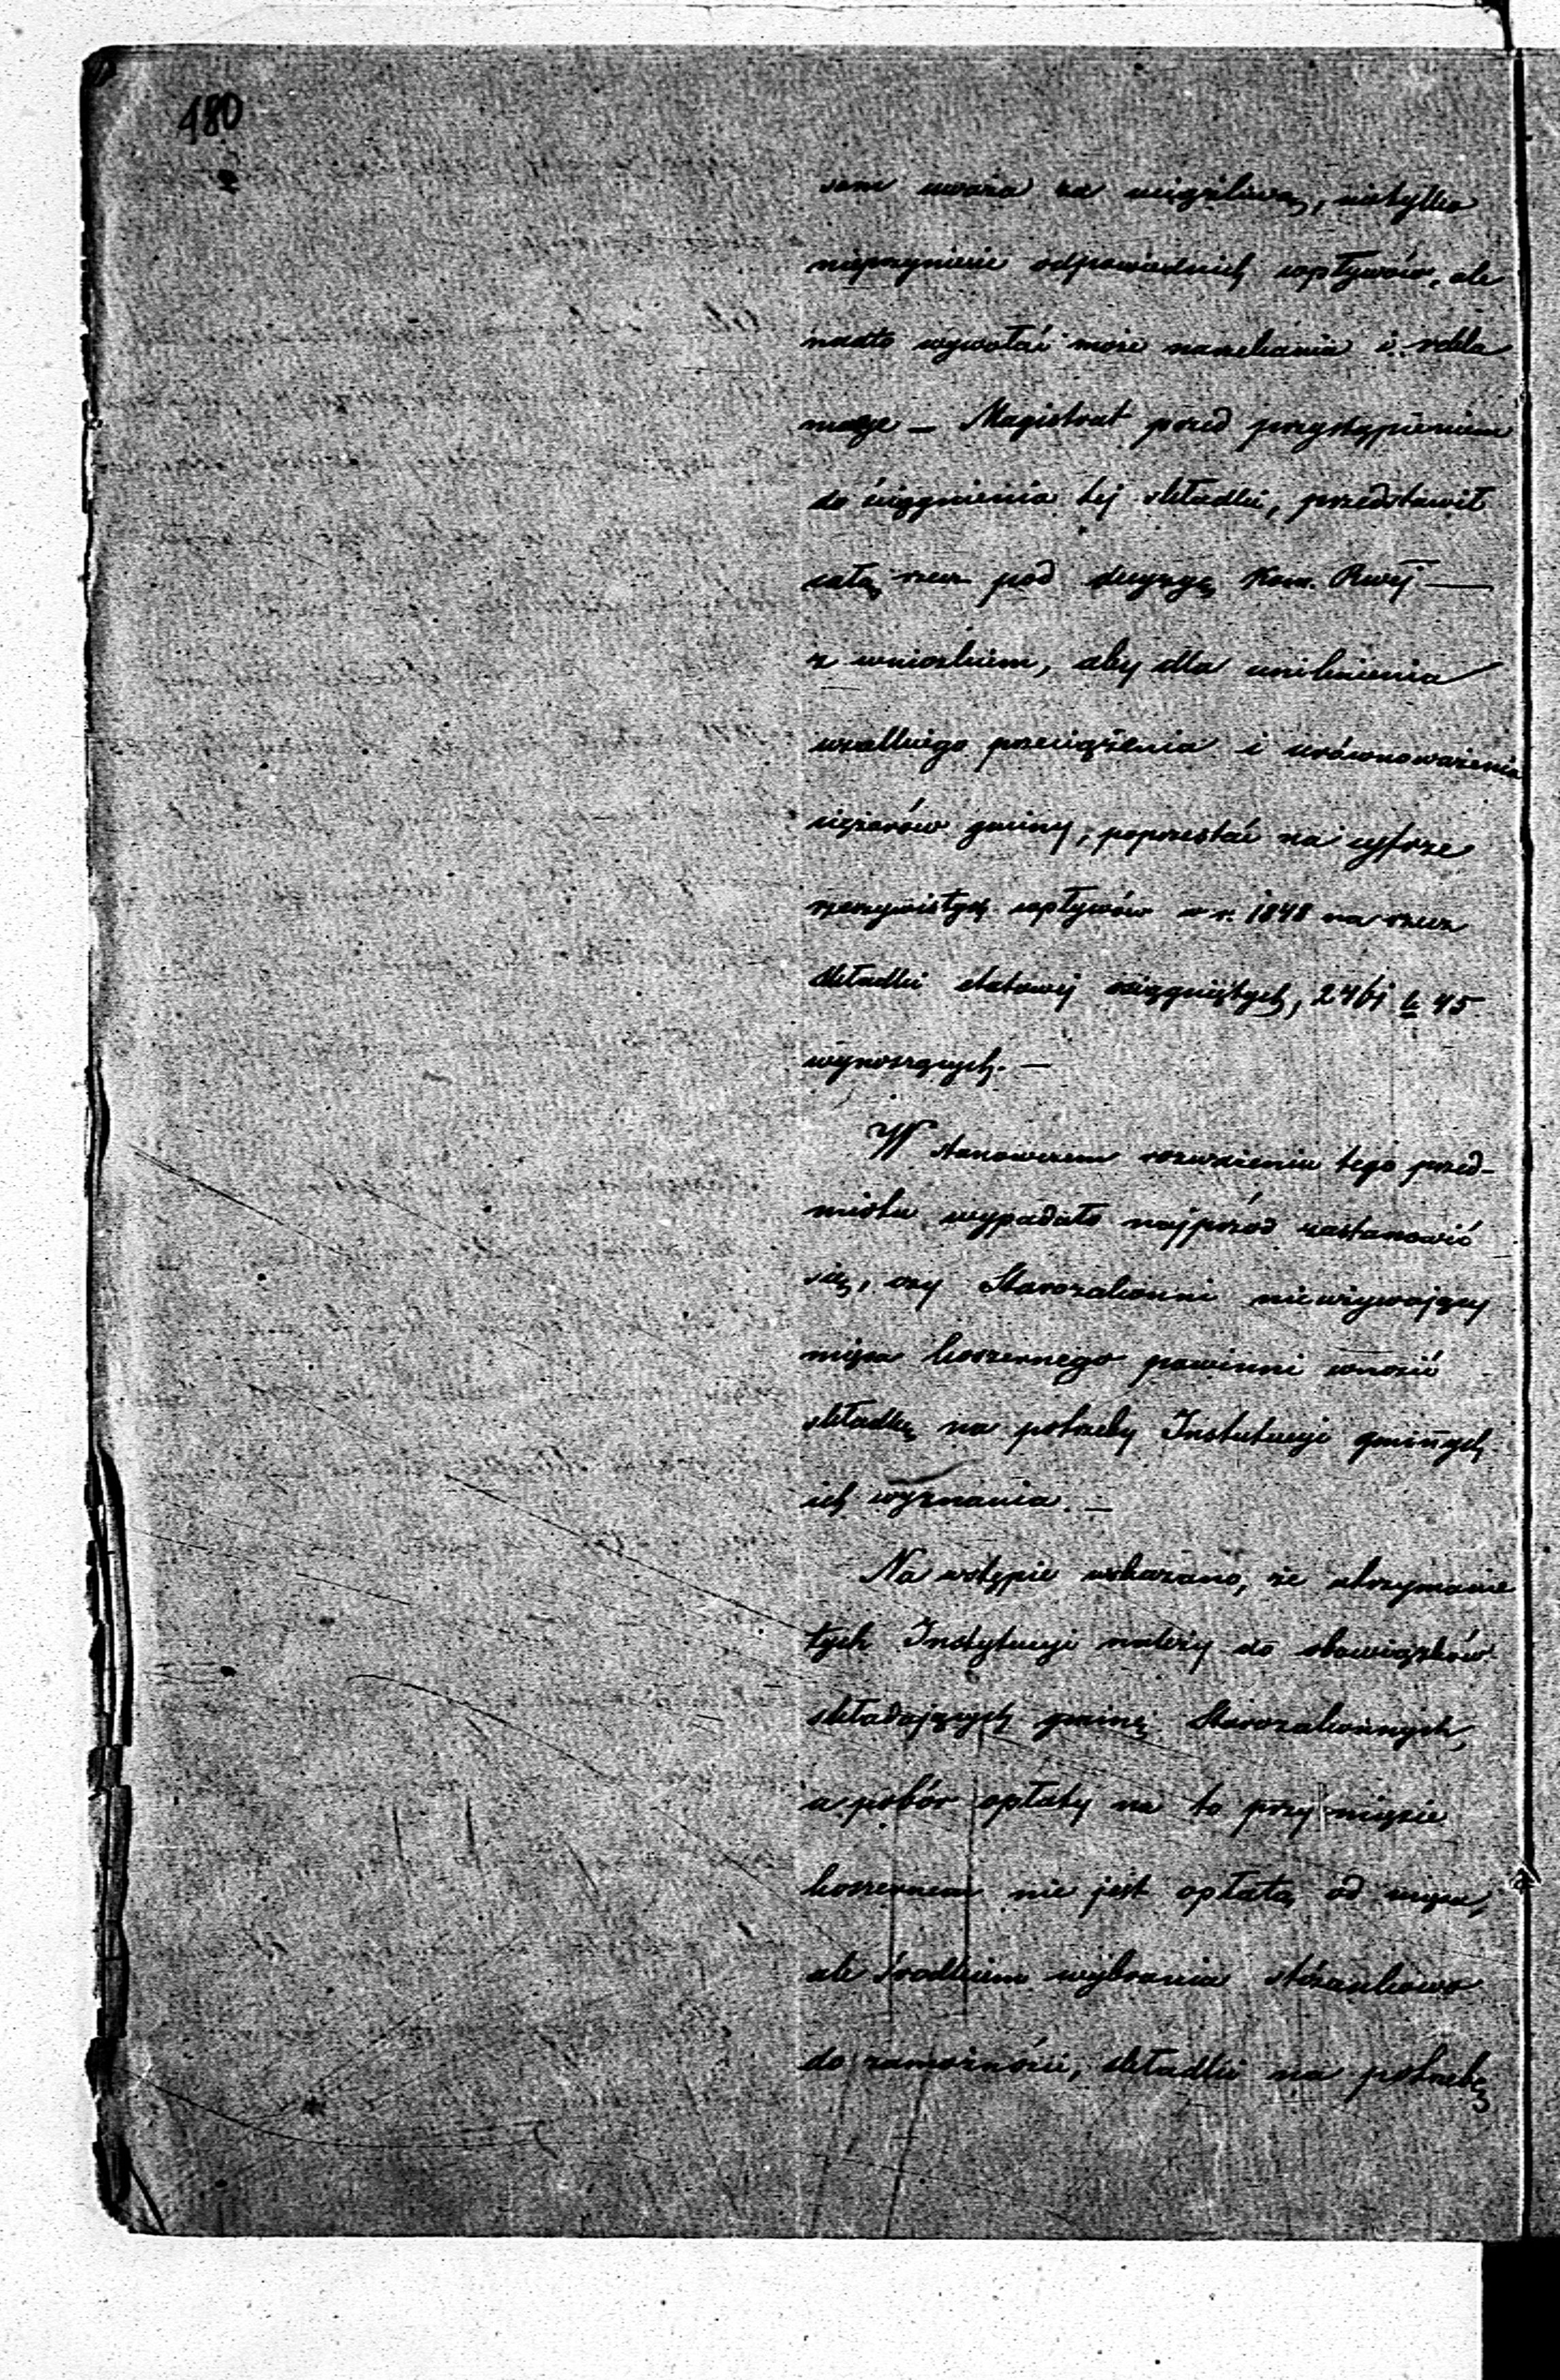 180
sam uważa za uciążliwą, nietylko
nieprzyniesie odpowiednich wpływów, ale
nadto wywołać może narzekania i rekla
macye — Magistrat przed przystąpieniem
do ściągnienia tej składki, przedstawił
całą rzecz pod decyzyę Kom. Rwej —
z wnioskiem, aby dla uniknienia
wszelkiego przeciążenia i zrównoważenia
ciężarów gminy, poprzestać na cyfrze
rzeczywistych wpływów w r. 1848 na rzecz
składki etatowej osiągniętych, 2461 k 45
wynoszących. —
W stanowczem rozważeniu tego przed-
miotu wypadało najprzód zastanowić
się, czy Starozakonni nieużywający
mięsa koszernego powinni wnosić
składkę na potrzeby Instytucyi gminych
ich wyznania. —
Na wstępie wskazano, że utrzymanie
tych Instytucyi należy do obowiązków
składających gminę Starozakonnych,
a pobór opłaty na to przy mięsie
koszernem nie jest opłatą od mięsa,
ale środkiem wybrania stósunkowo
do zamożności, składki na potrzebę